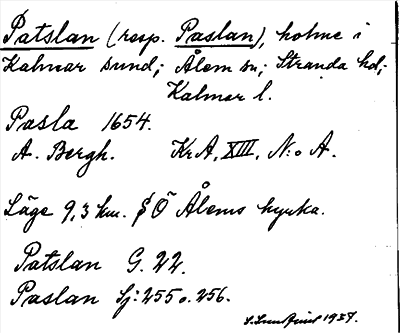 Patslan (resp. Paslan), holme i
Kalmar sund; Ålem sn; Stranda hd;
Kalmar l.
Pasla 1654.
A. Bergh. KrA, XIII, N:o A.
Läge 9,3 km. Ö Ålems kyrka.
Patslan G. 22.
Paslan Sj: 255 o. 256.
1937.